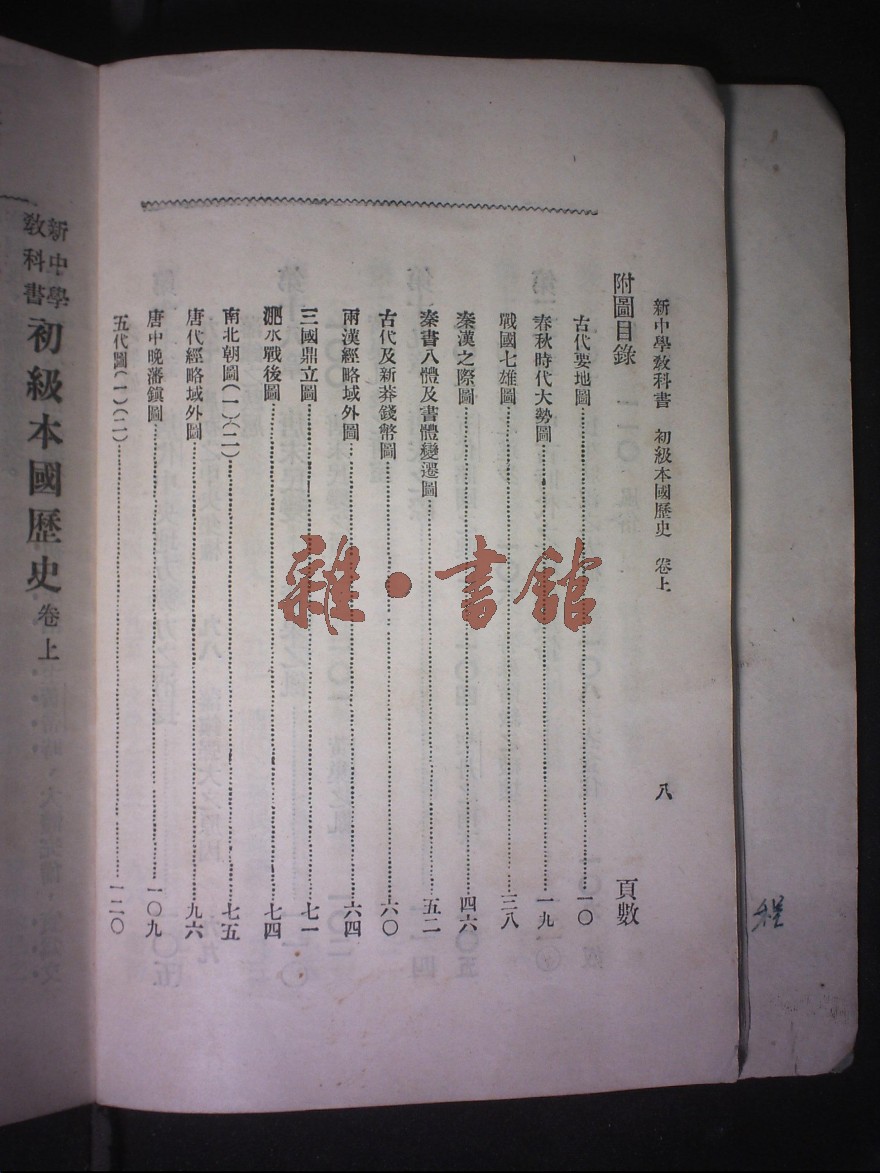 新中學教科書 初級本國歷史 卷上
八
附圖目錄
頁數
古代要地圖⋯⋯一〇
春秋時代大勢圖⋯⋯一九
戰國七雄圖⋯⋯三八
秦漢之際圖⋯⋯四六
秦書八體及書體變遷圖⋯⋯五二
古代及新莽錢幣圖⋯⋯六〇
兩漢經略域外圖⋯⋯六四
三國鼎立圖⋯⋯七一
淝水戰後圖⋯⋯七四
南北朝圖(一)(二)⋯⋯七五
唐代經略域外圖⋯⋯九六
唐中晚藩鎮圖⋯⋯一〇九
五代圖(一)(二)⋯⋯一二〇
新中學
教科書
初級本國歷史 卷上
雜·書館
程